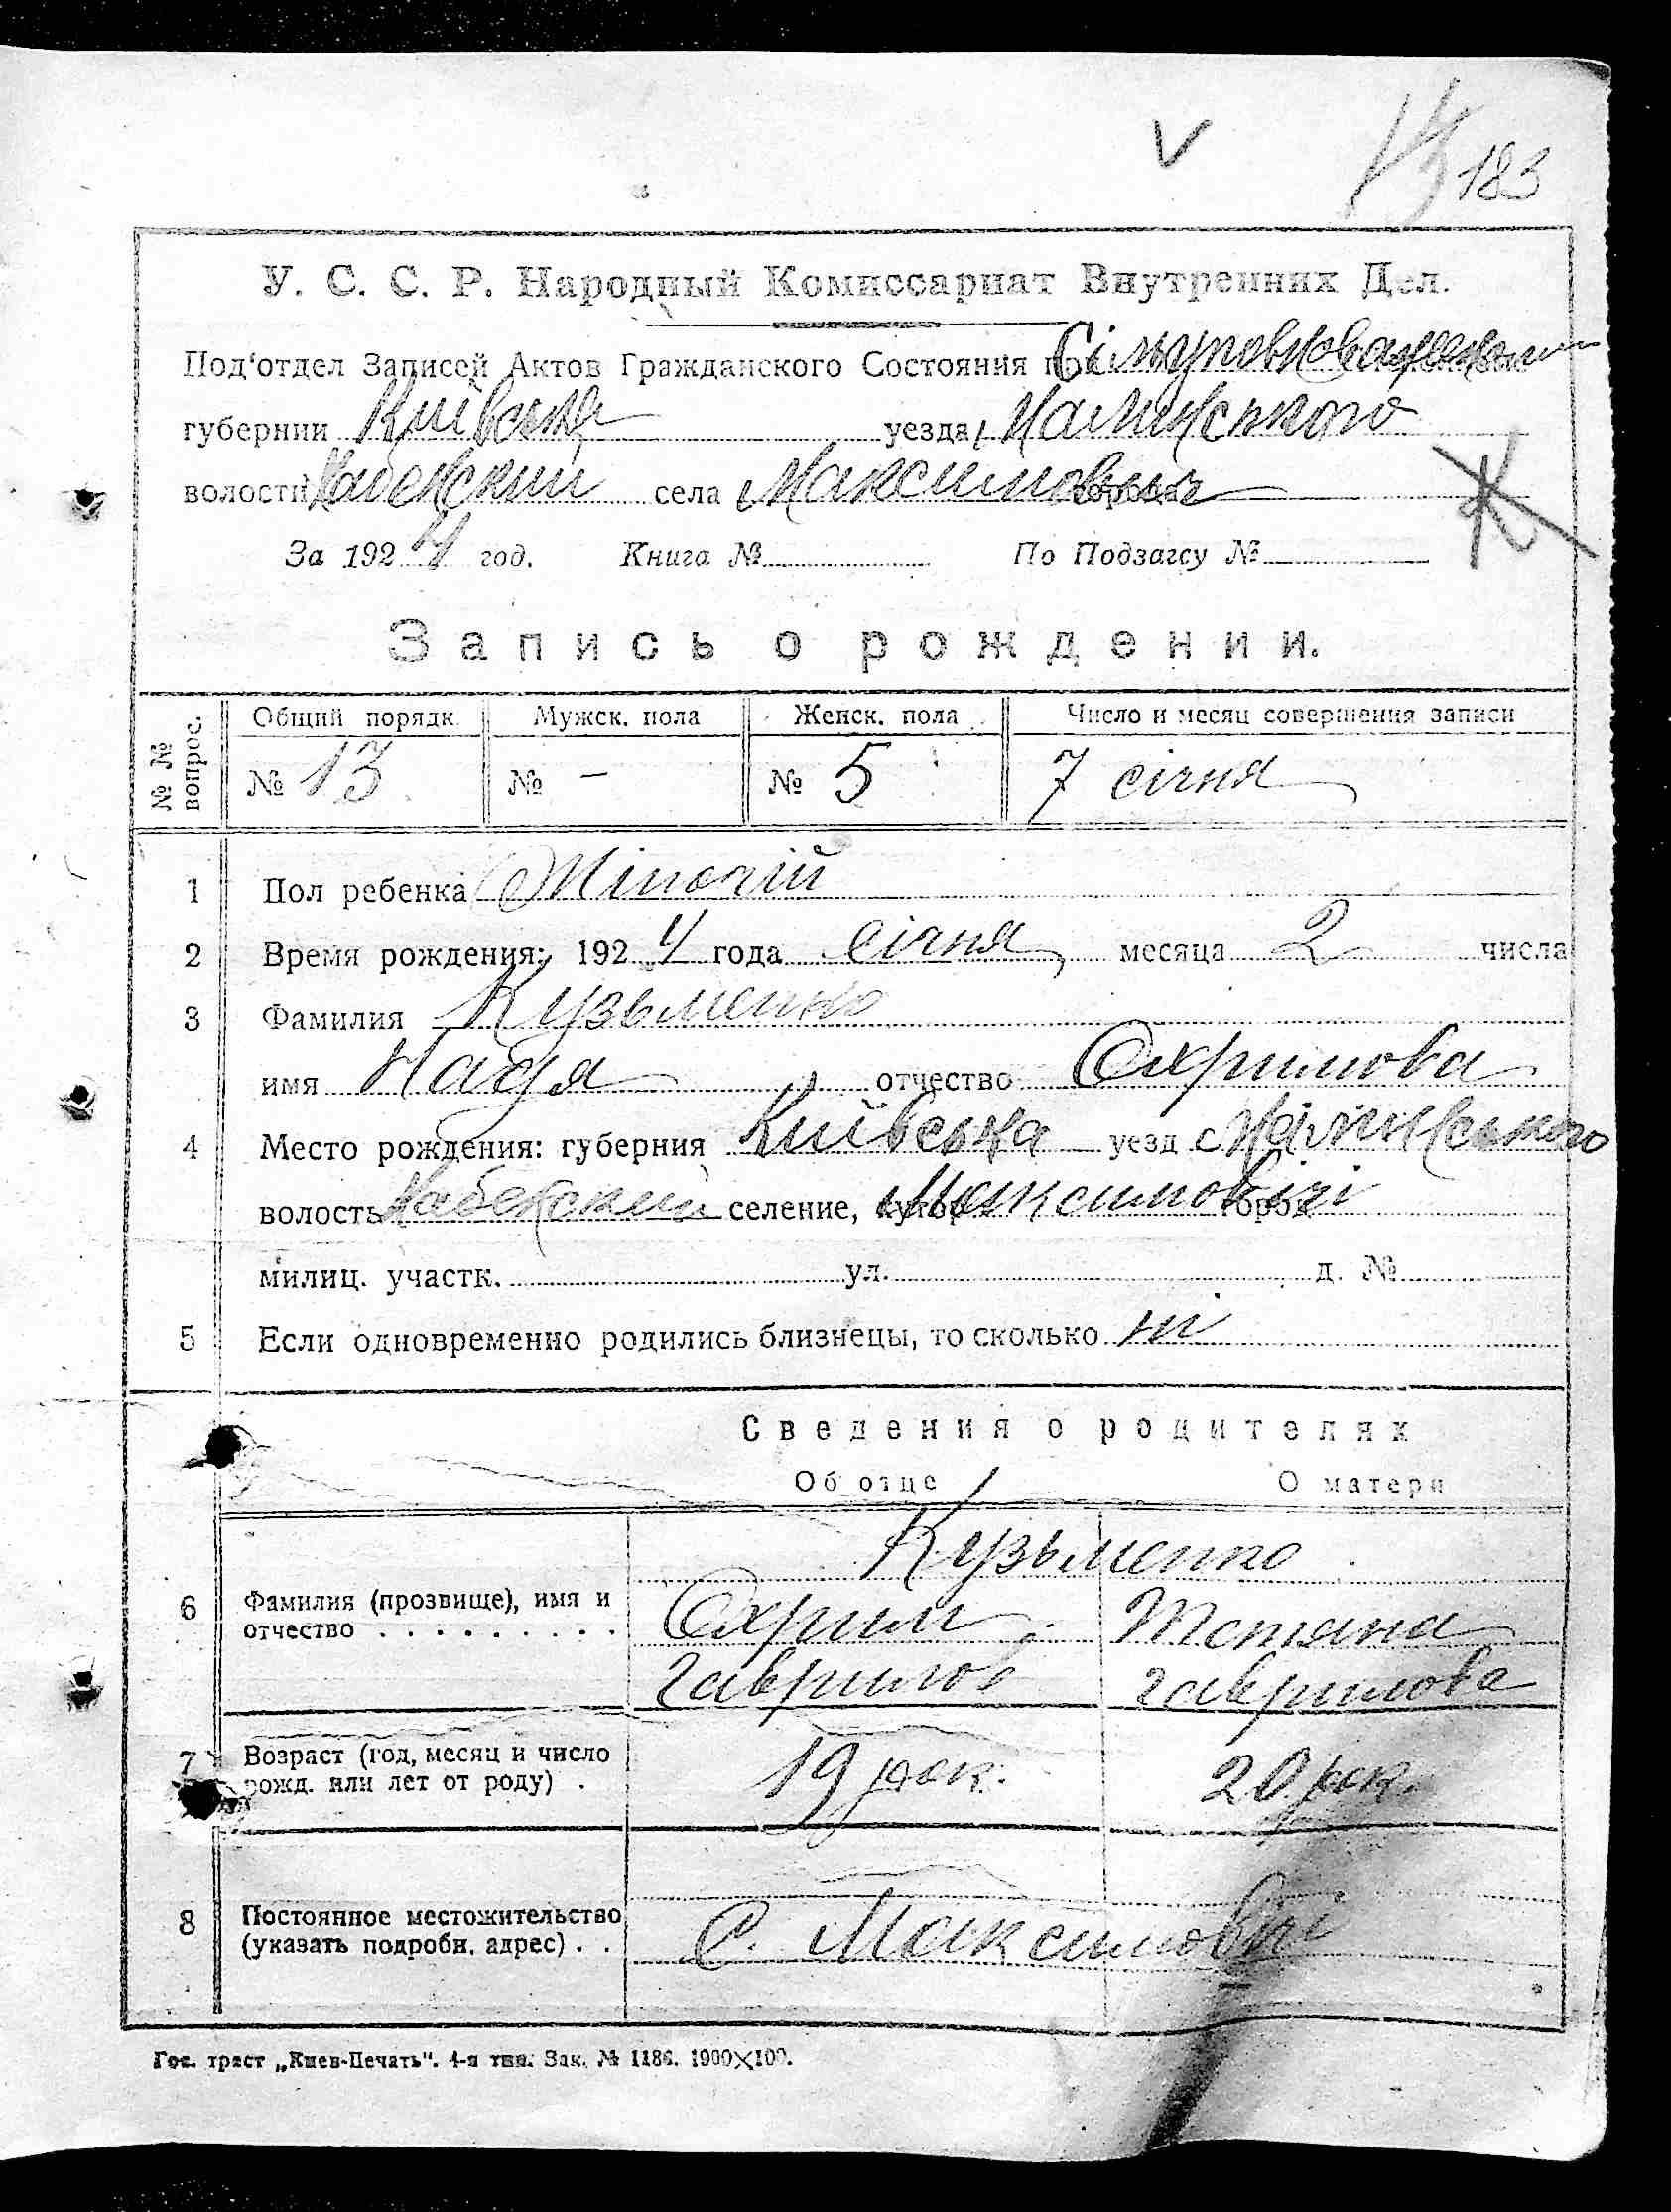 V
183
У. С. С. Р. Народный Комиссариат Внутренних Дел.
Под'отдел Записей Актов Гражданского Состояния при
губернии Київська уезда Малинського
волости села Максимовичи
За 1924 год. Книга № По Подзагсу №
К
Запись о рождении.
№ № вопрос. Общий порядк. Мужск. пола Женск. пола Число и месяц совершения записи
№ 13 № — № 5 7 січня
1 Пол ребенка Жіночій
2 Время рождения: 1924 года січня месяца 2 числа
3 Фамилия Кузьменко
имя Надя отчество Охримова
4 Место рождения: губерния Київська уезд Малинського
волость селение, хутор Максимовичі город
милиц. участк. ул. д. №
5 Если одновременно родились близнецы, то сколько ні
Сведения о родителях
Об отце О матери
Кузьменко
6 Фамилия (прозвище), имя и отчество . . . . . . . . . Охрим Тетяна
Гаврилов Гаврилова
7 Возраст (год, месяц и число рожд. или лет от роду) . 19 рок. 20 рок.
8 Постоянное местожительство (указать подробн. адрес) . . С. Максимовичі
Гос. трест „Киев-Печать". 4-я тип. Зак. № 1186. 1900×100.